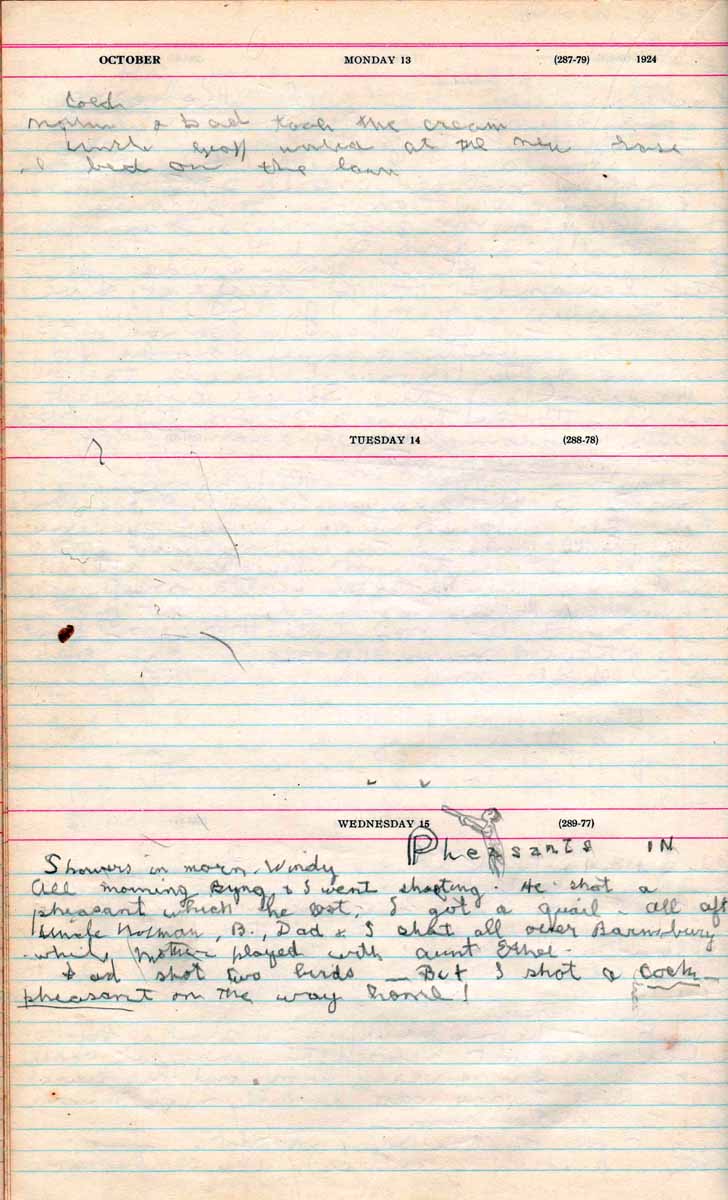 OCTOBER MONDAY 13 (287-79) 1924
Cold
& Dad took the cream
Uncle Geoff worked at the new rose
bed on the lawn
TUESDAY 14 (288-78)
WEDNESDAY 15 (289-77)
Pheasants IN
Showers in morn. Windy
All morning Byng & I went shooting. He shot a
pheasant which he lost, I got a quail - all aft
Uncle Norman, B., Dad & I shot all over Barnsbury
while Mother played with aunt Ethel.
Dad shot two birds — But I shot a Cock-
pheasant on the way home!